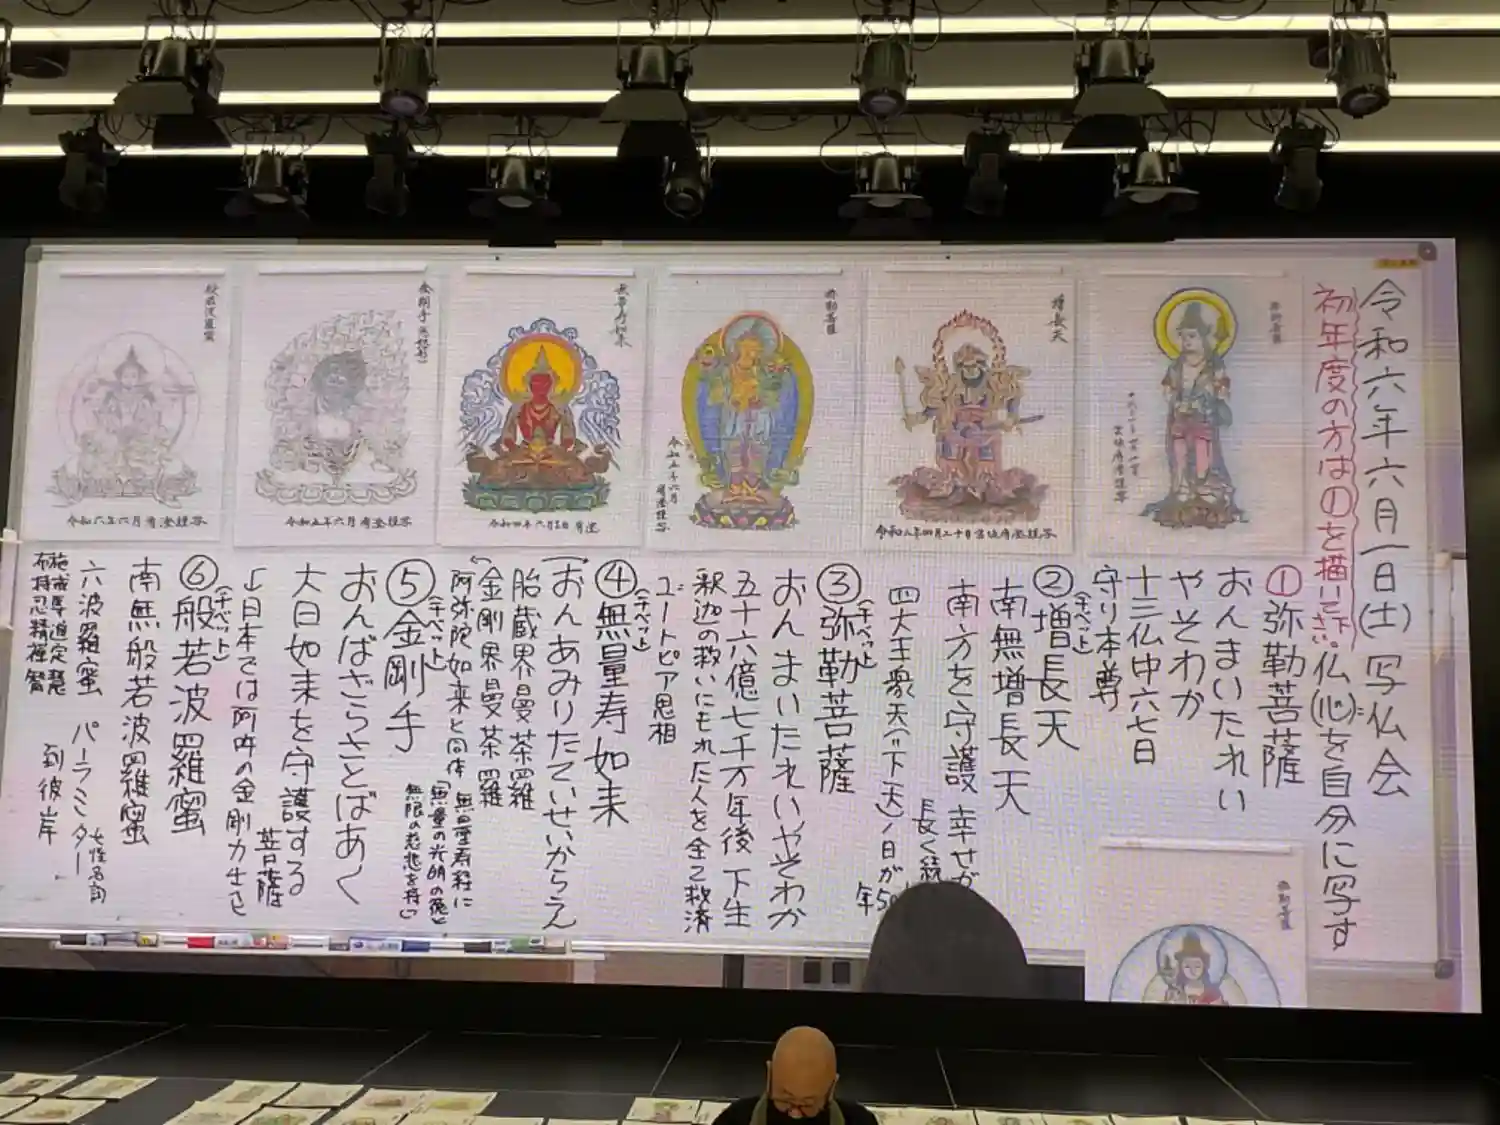 令和六年六月一日(土)写仏会
初年度の方は①を描いて下さい。仏(心)を自分に写す
①弥勒菩薩
おんまいたれい
やそわか
十三仏中六七日
守り本尊
②増長天
(チベット)
南無増長天
南方を守護 幸せが
長く続
四大王衆天(下天)1日が50
年
③弥勒菩薩
(チベット)
おんまいたれいやそわか
五十六億七千万年後下生
釈迦の救いにもれた人を全て救済
ユートピア思相
④無量寿如来
(チベット)
おんあみりたていせいからえ
胎蔵界曼荼羅
金剛界曼荼羅
阿弥陀如来と同体
無量寿経に
「無量の光明の兎と
無限の慈悲を持い」
⑤金剛手
(チベット)
おんばざらさとばあく
大日如来を守護する
菩薩
↓日本では阿吽の金剛力士さ
⑥般若波羅蜜
(チベット)
南無般若波羅蜜
六波羅蜜 パーラミター
女性名詞
到彼岸
布施持戒忍辱精進禅定智慧
増長天
弥勒菩薩
無量寿如来
般若波羅蜜
令和六年六月
令和五年六月
令和五年六月